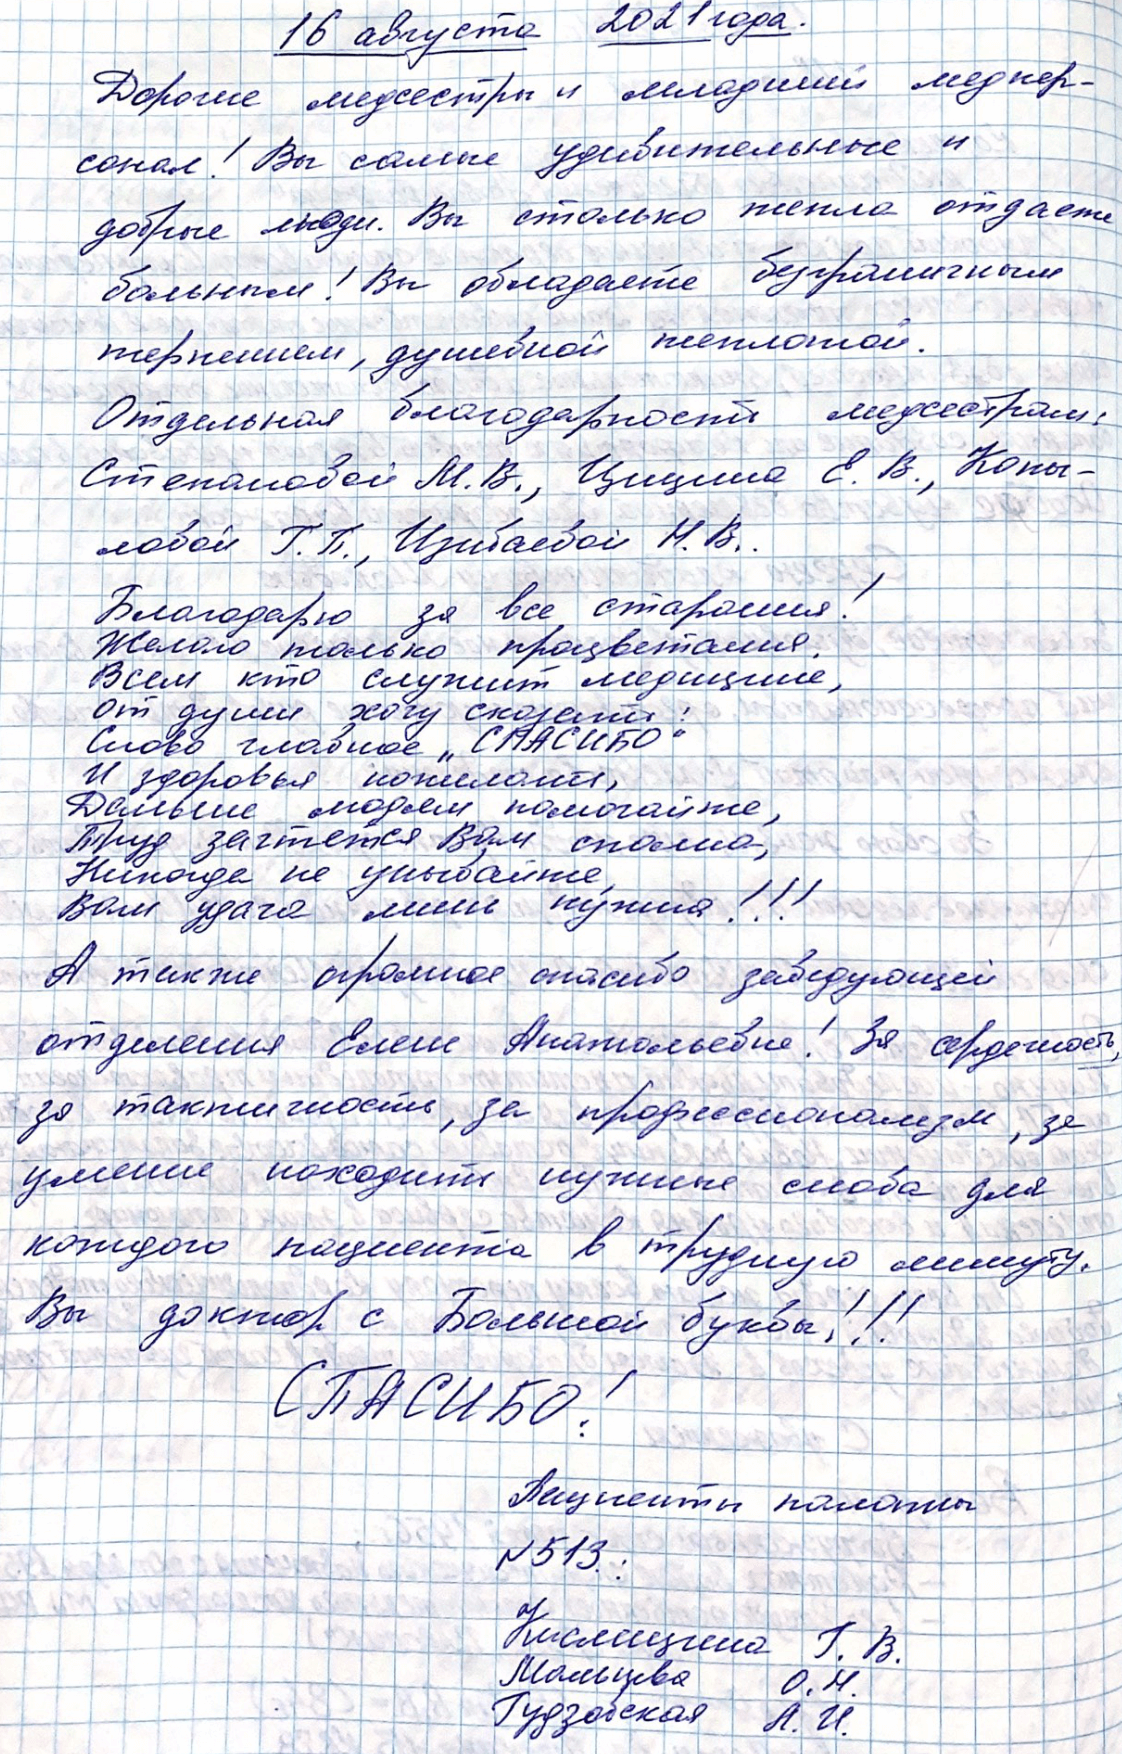 16 августа 2021 года.
Дорогие медсестры и младший медпер-
сонал! Вы самые удивительные и
добрые люди. Вы столько тепла отдаете
больным! Вы обладаете безграничным
терпением, душевной теплотой.
Отдельная благодарность медсестрам:
Степановой М.В., Цицина Е.В., Копы-
ловой Г.П., Изибаевой Н.В..
Благодарю за все старания!
Желаю только процветания.
Всем кто служит медицине,
От души хочу сказать:
Слово главное „СПАСИБО“
И здоровья пожелать,
Дальше людям помогайте,
Труд зачтется Вам сполна,
Никогда не унывайте,
Вам удача лишь нужна!!!
А также огромное спасибо заведующей
отделения Елене Анатольевне! За сердечность,
за тактичность, за профессионализм, за
умение находить нужные слова для
каждого пациента в трудную минуту.
Вы доктор с Большой буквы!!!
СПАСИБО!
Пациенты палаты
№513.:
Кислицина Г.В.
Мальцева О.Н.
Гудзовская А.И.